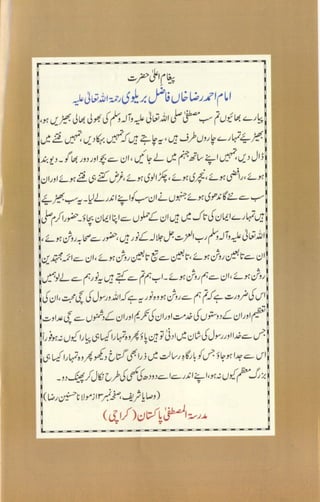 پیغام اعلیٰ حضرت
امام احمد رضا خاں فاضل بریلوی رحمۃ اللہ تعالیٰ علیہ
پیارے بھائیوں تم سب مصطفیٰ صلی اللہ تعالیٰ علیہ وآلہ وسلم کی بھولی بھالی بھیڑیں ہو،
بھیڑیے تمہارے چاروں طرف ہیں، یہ چاہتے ہیں کہ تمہیں بہکا دیں، تمہیں فتنے میں
ڈال دیں، تمہیں اپنے ساتھ جہنم میں لے جائیں، ان سے بچو اور دور بھاگو۔ دیوبندی
ہوئے، رافضی ہوئے، نیچری ہوئے، چکڑالوی ہوئے، غرض کتنے ہی فتنے ہوئے اور ان
سب سے نئے گاندھوی ہوئے جنہوں نے ان سب کو اپنے اندر لے لیا۔ یہ سب بھیڑیے
ہیں تمہارے ایمان کی تاک میں ہیں ان کے حملوں سے اپنا ایمان بچاؤ۔ حضور اکرم صلی
اللہ تعالیٰ علیہ وآلہ وسلم رب العزت جل جلالہ کے نور ہیں، حضور سے صحابہ روشن ہوئے،
ان سے تابعین روشن ہوئے، تابعین سے تبع تابعین روشن ہوئے، ان سے ائمہ مجتہدین
روشن ہوئے، ان سے ہم روشن ہوئے۔ اب ہم تم سے کہتے ہیں یہ نور ہم سے لے لو ہمیں
اس کی ضرورت ہے کہ تم ہم سے روشن ہو وہ نور یہ ہے کہ اللہ و رسول کی سچی محبت، ان کی
تعظیم اور ان کے دوستوں کی خدمت اور ان کی تکریم اور ان کے دشمنوں سے سچی عداوت
جس سے خدا اور رسول کی شان میں ادنیٰ توہین پاؤ پھر وہ تمہارا کیسا ہی پیارا کیوں نہ ہو فوراً
اس سے جدا ہو جاؤ جس کو بارگاہ رسالت میں ذرا بھی گستاخ دیکھو پھر وہ تمہارا کیسا ہی
بزرگ معظم کیوں نہ ہو، اپنے اندر سے اسے دودھ کی مکھی کی طرح نکال کر پھینک دو۔
(وصایا شریف، صفحہ نمبر ۱۳ از مولانا حسنین رضا)
مدرسۃ المصطفیٰ پاکستان (کراچی)